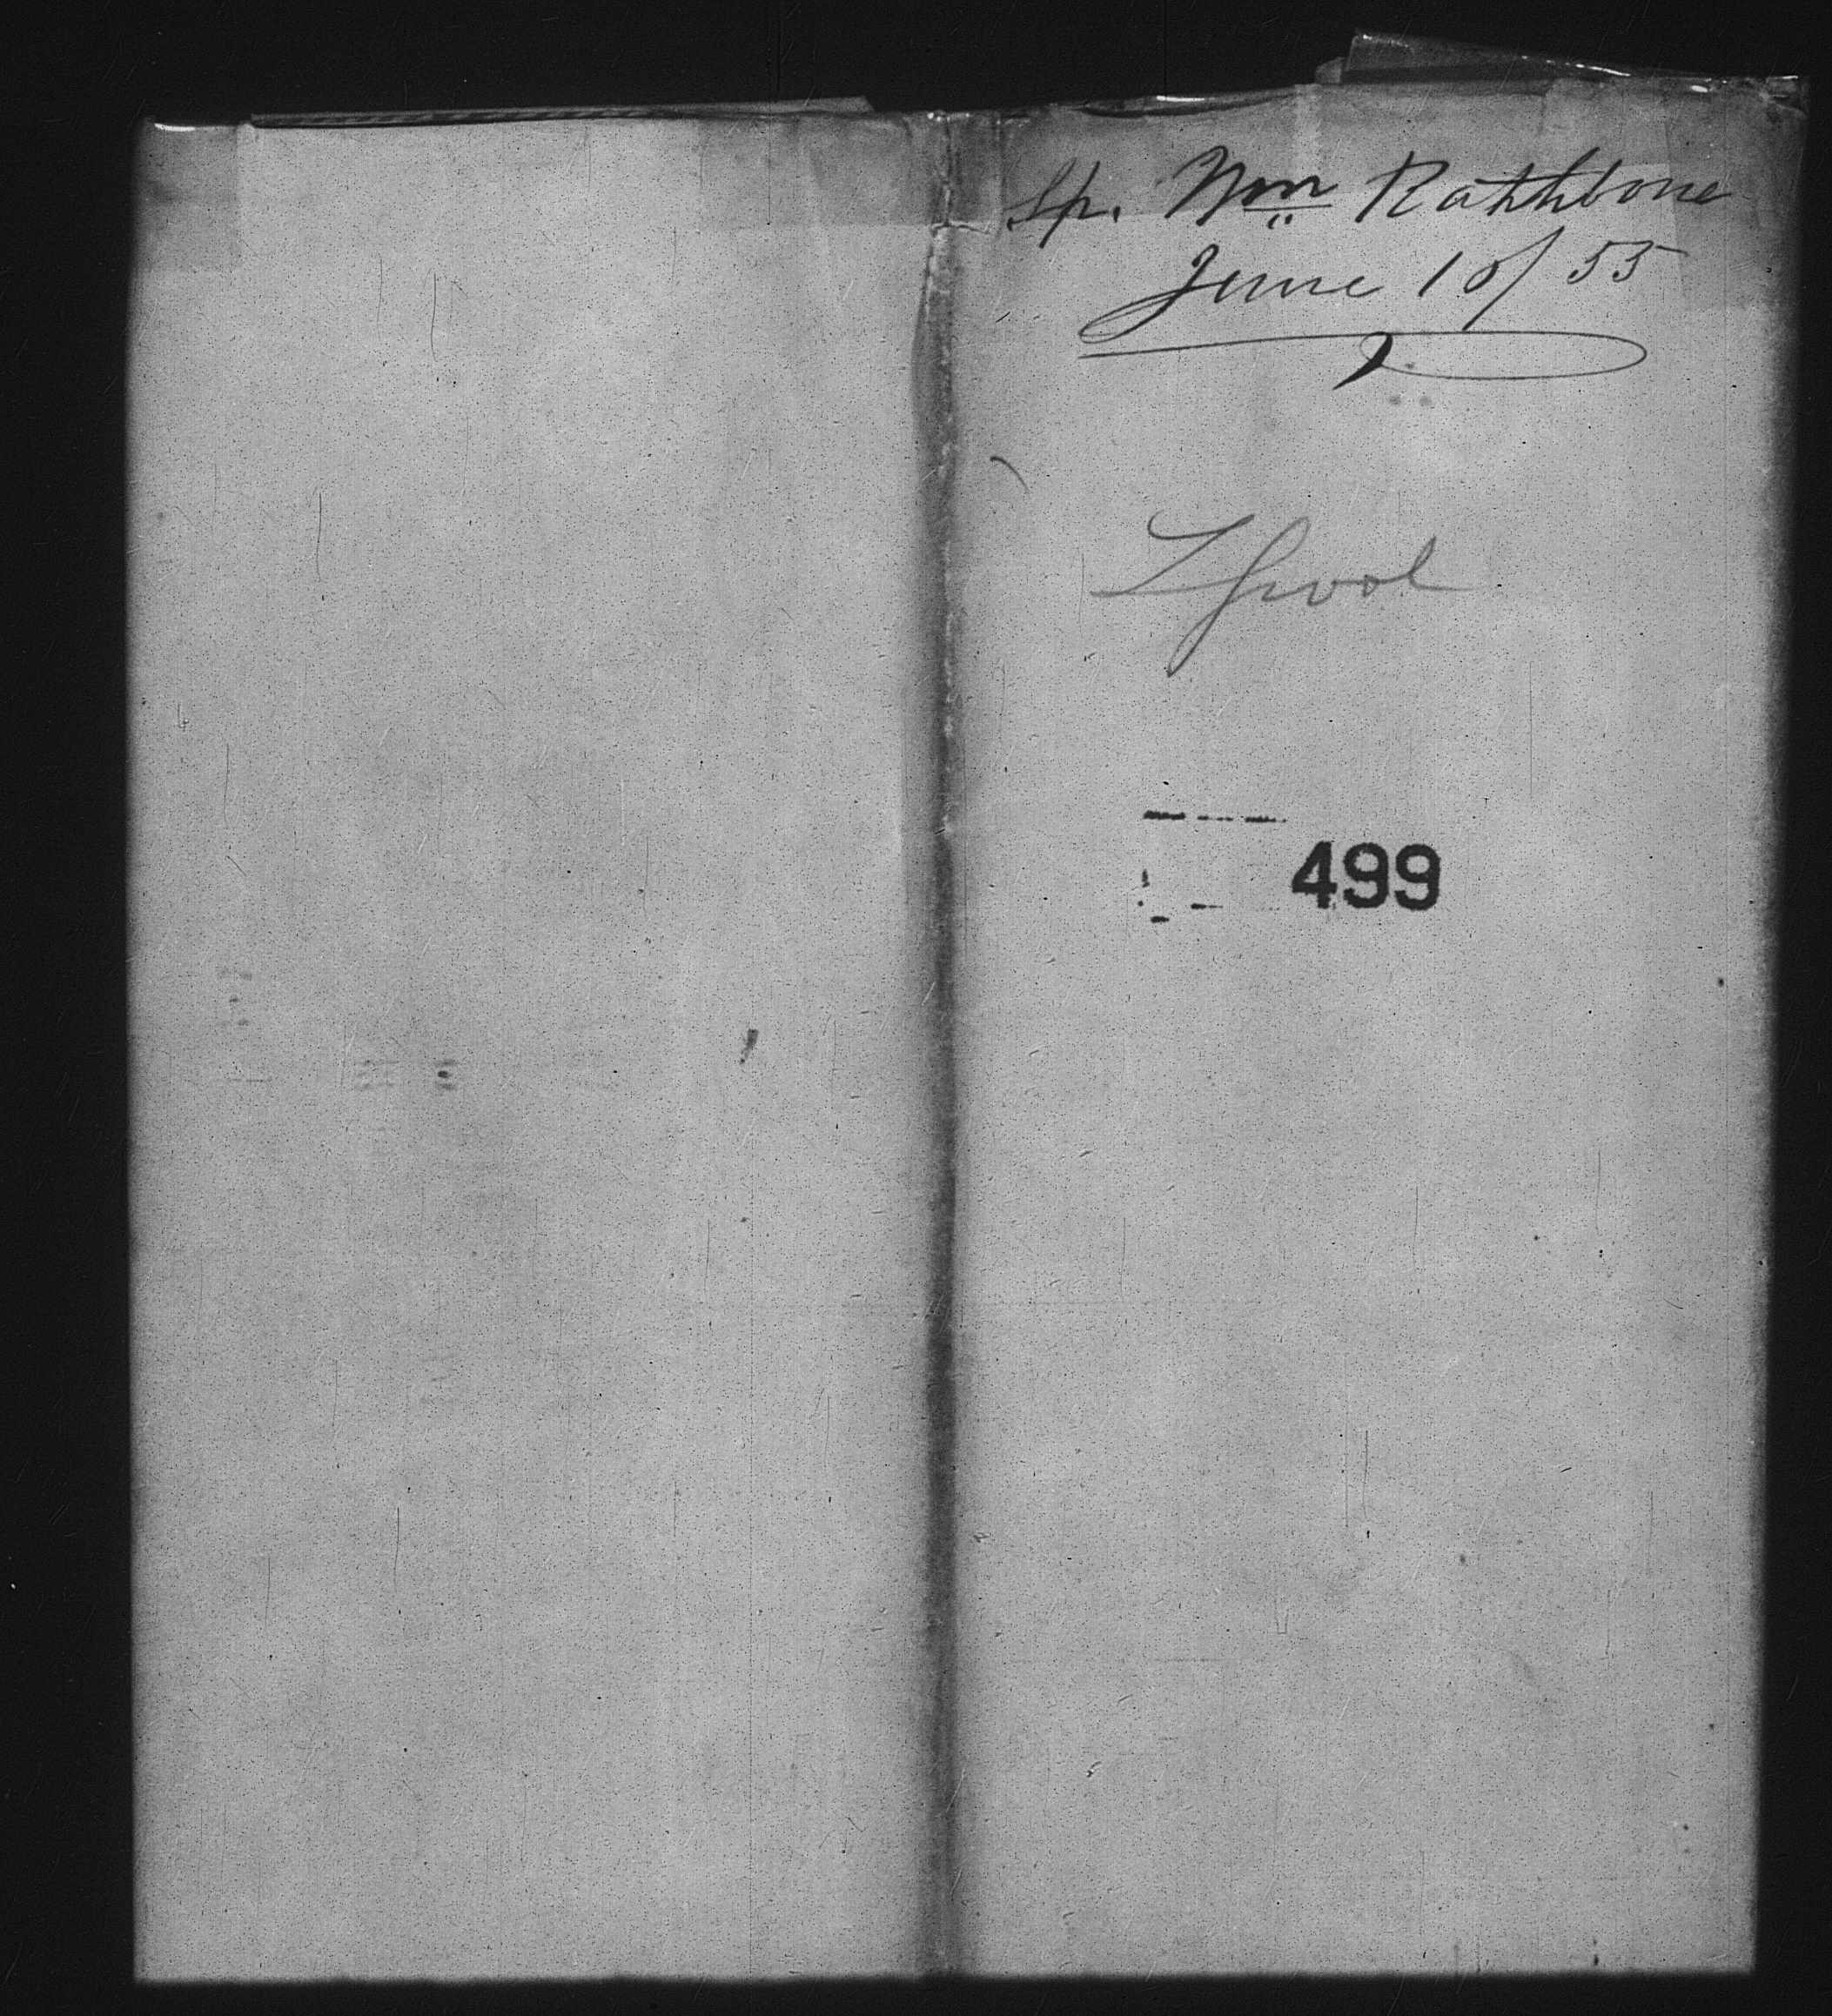 Sp. Wm Rathbone
June 10/55
L'pool
499